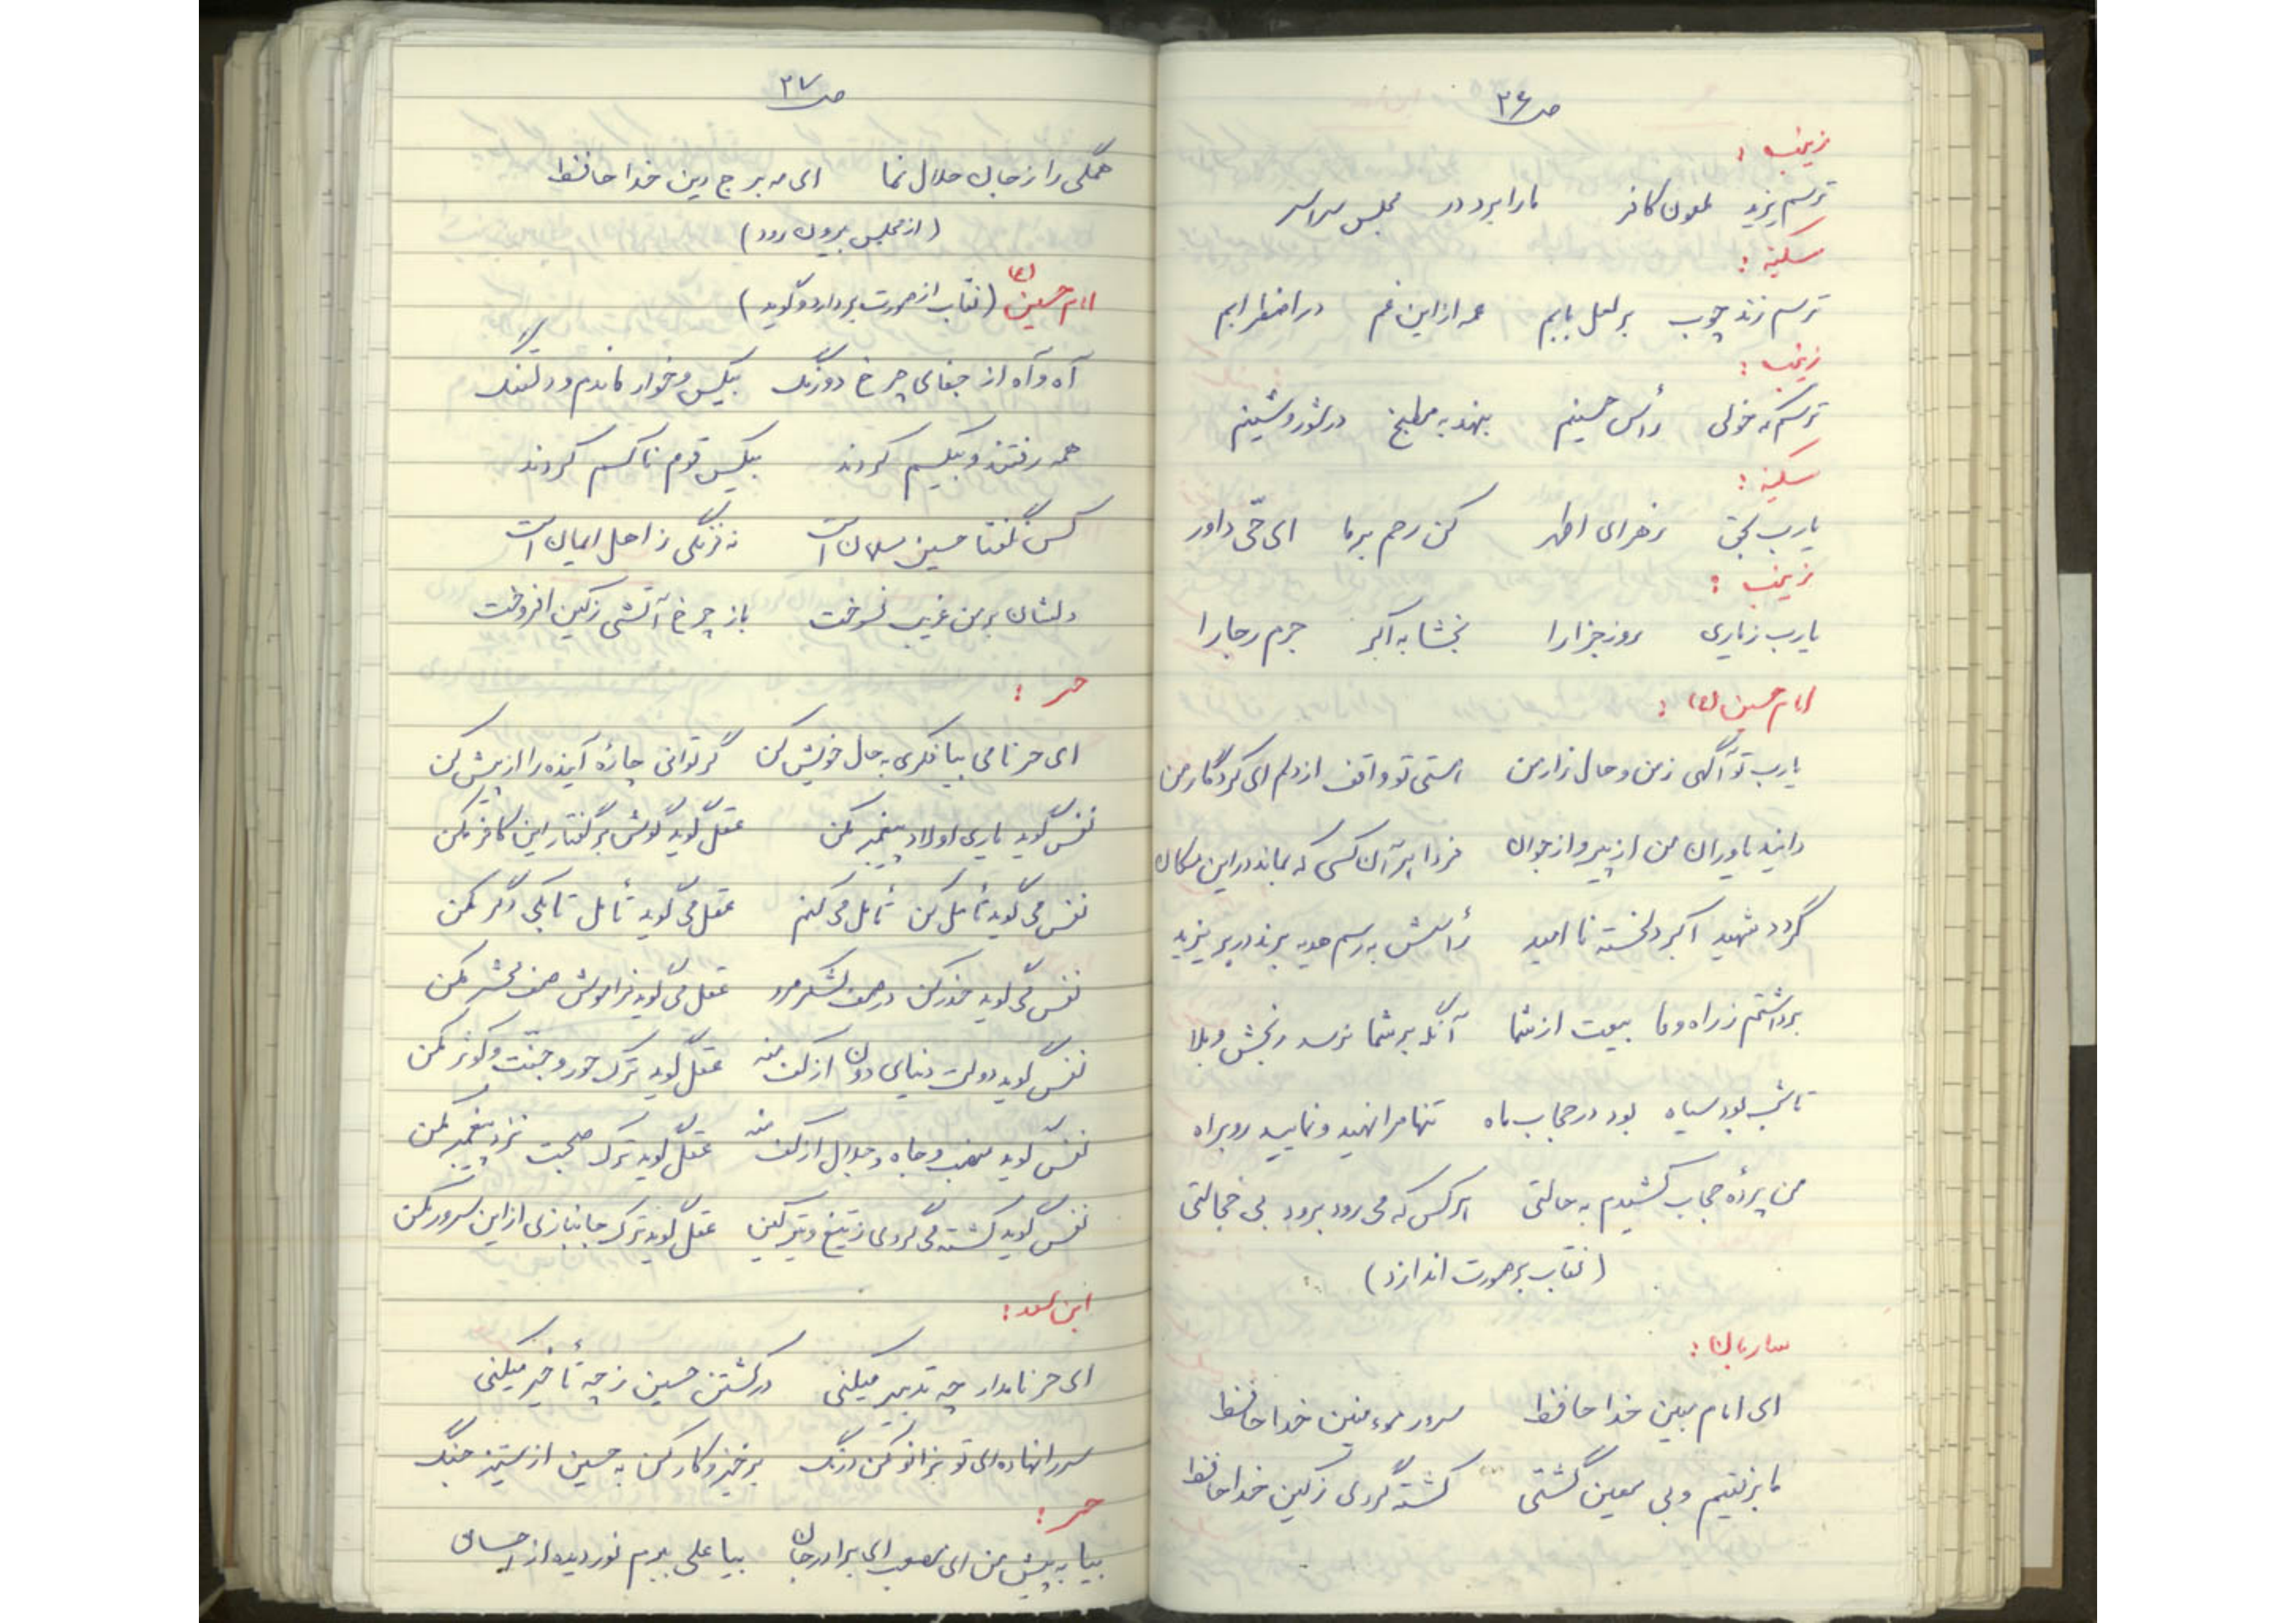 ص۲۶
زینب :
ترسم یزید ملعون کافر ما را برد در مجلس سراسر
سکینه :
ترسم زند چوب بر لعل بابم عمه از این غم در اضطرابم
زینب :
ترسم که خولی رأس حسینم بنهد به مطبخ در شور و شینم
سکینه :
یارب بحق زهرای اطهر کن رحم بر ما ای حّی داور
زینب :
یارب زیاری روز جزا را بخشا به اکبر جرم رجا را
امام حسین (ع) :
یارب تو آگهی ز من و حال زار من استی تو واقف از دلم ای کردگار من
دانید یاوران من از پیر و از جوان فردا هر آن کسی که بماند در این مکان
گردد شهید اکبر دلخسته نا امید رأسش به رسم هدیه برند در بر یزید
برداشتم ز راه وفا بیعت از شما آنگه بر شما نرسد رنجش و بلا
تا شب بود سیاه بود در حجاب ماه تنها مرا نهید و نمایید رو براه
من پردهٔ حجاب کشیدم به حالتی هر کس که می رود برود بی خجالتی
(نقاب بر صورت اندازد)
ساربان :
ای امام مبین خدا حافظ سرور مومنین خدا حافظ
ما برفتیم و بی معین گشتی کشته گردی ز کین خدا حافظ
ص۲۷
همگی را ز جان حلال نما ای مه برج دین خدا حافظ
(از مجلس بیرون رود)
امام حسین (ع) (نقاب از صورت بردارد و گوید)
آه و آه از جفای چرخ دو رنگ بیکس و خوار ماندم و دلتنگ
همه رفتند و بیکسم کردند بیکس قوم ناکسم کردند
کس نگفتا حسین مسلمان است نه فرنگی ز اهل ایمان است
دلشان بر من غریب نسوخت باز چرخ آتشی ز کین افروخت
حر :
ای حر نامی بیا فکری به حال خویش کن گر توانی چارهٔ آینده را از پیش کن
نفس گوید یاری اولاد پیغمبر مکن عقل گوید گوش بر گفتار این کافر مکن
نفس می گوید تأمل کن تأمل می کنم عقل می گوید تأمل تا بکی دگر مکن
نفس می گوید حذر کن در صف لشکر مرو عقل می گوید فراموش صف محشر مکن
نفس گوید دولت دنیای دون از کف منه عقل گوید ترک حور و جنّت و کوثر مکن
نفس گوید منصب و جاه و جلال از کف منه عقل گوید ترک صحبت نزد پیغمبر مکن
نفس گوید کشته می گردی ز تیغ و تیر کین عقل گوید ترک جانبازی از این سرور مکن
ابن سعد :
ای حر نامدار چه تدبیر میکنی در کشتن حسین ز چه تأخیر میکنی
سر را نهاده ای تو بزانو مکن درنگ برخیز و کار کن به حسین از ستیز جنگ
حر :
بیا به پیش من ای مصعب ای برادر جان بیا علی ببرم نور دیده از احسان